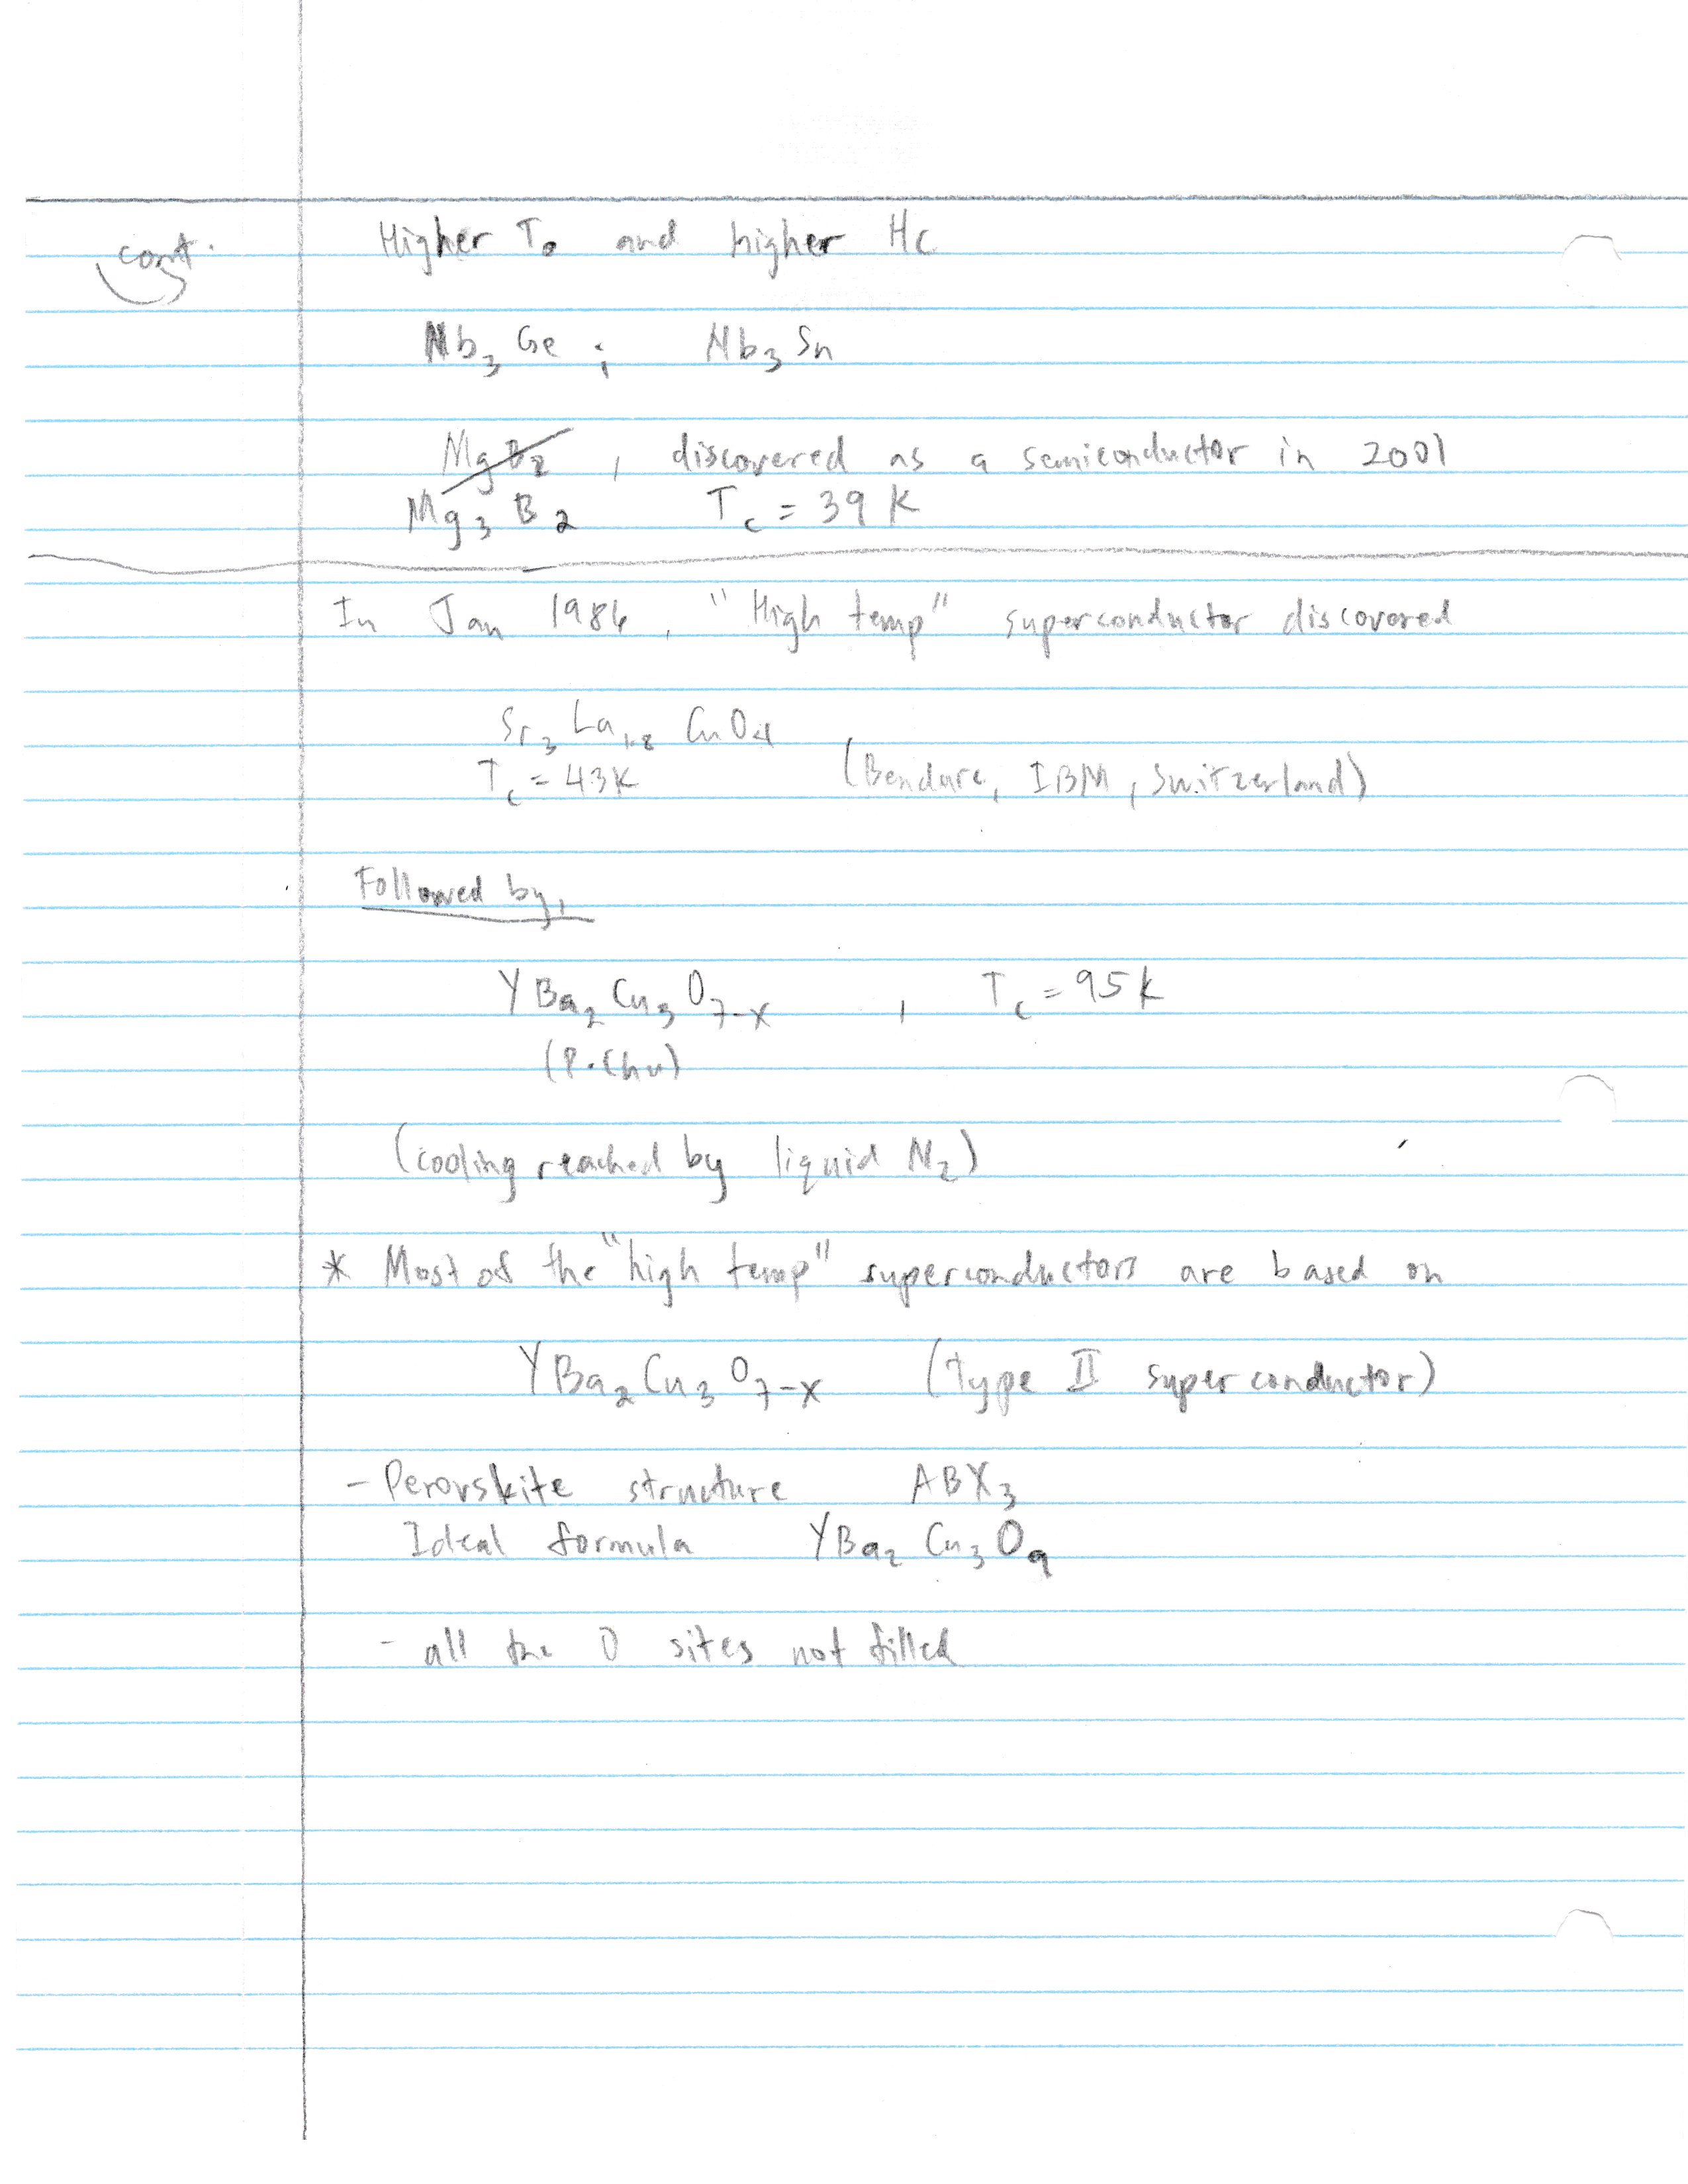 cont.
Higher Tc and higher Hc
Nb3Ge ; Nb3Sn
MgB2 , discovered as a semiconductor in 2001
Mg3B2 Tc = 39 K
In Jan 1986, "High temp" superconductor discovered
Sr3La1.8CuO4
Tc = 43K (Bendure, IBM, Switzerland)
Followed by,
YBa2Cu3O7-x , Tc = 95K
(P. Chu)
(cooling reached by liquid N2)
* Most of the "high temp" superconductors are based on
YBa2Cu3O7-x (Type II superconductor)
- Perovskite structure ABX3
Ideal formula YBa2Cu3O9
- all the O sites not filled